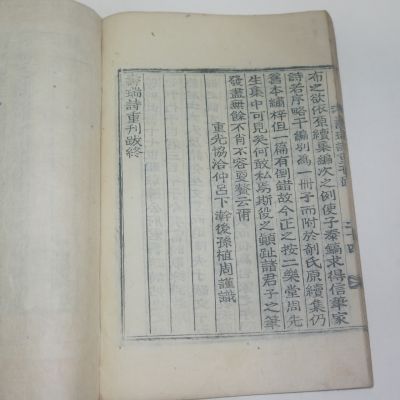 布之欲依原續集編次之例使子泰鎬求得信筆家
詩若序略干編別爲一冊子而附於剞氏原續集仍
舊本繡梓但一篇有倒錯故今正之按二樂堂周先
生集中可見矣何敢私焉斯役之顚趾諸君子之筆
發盡無餘不肖不容更贅云爾
重光協洽仲呂下澣後孫植周謹識
瑞詩重刊跋終